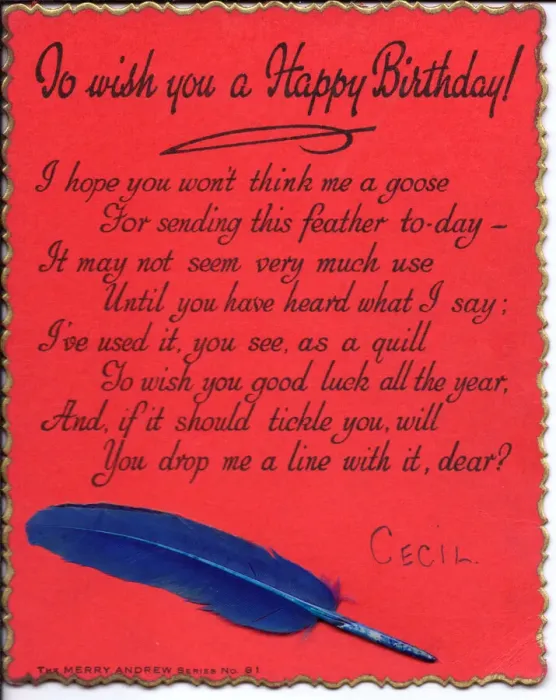 To wish you a Happy Birthday!
I hope you won't think me a goose
For sending this feather to-day —
It may not seem very much use
Until you have heard what I say;
I've used it, you see, as a quill
To wish you good luck all the year,
And, if it should tickle you, will
You drop me a line with it, dear?
CECIL.
THE MERRY ANDREW SERIES NO. 81